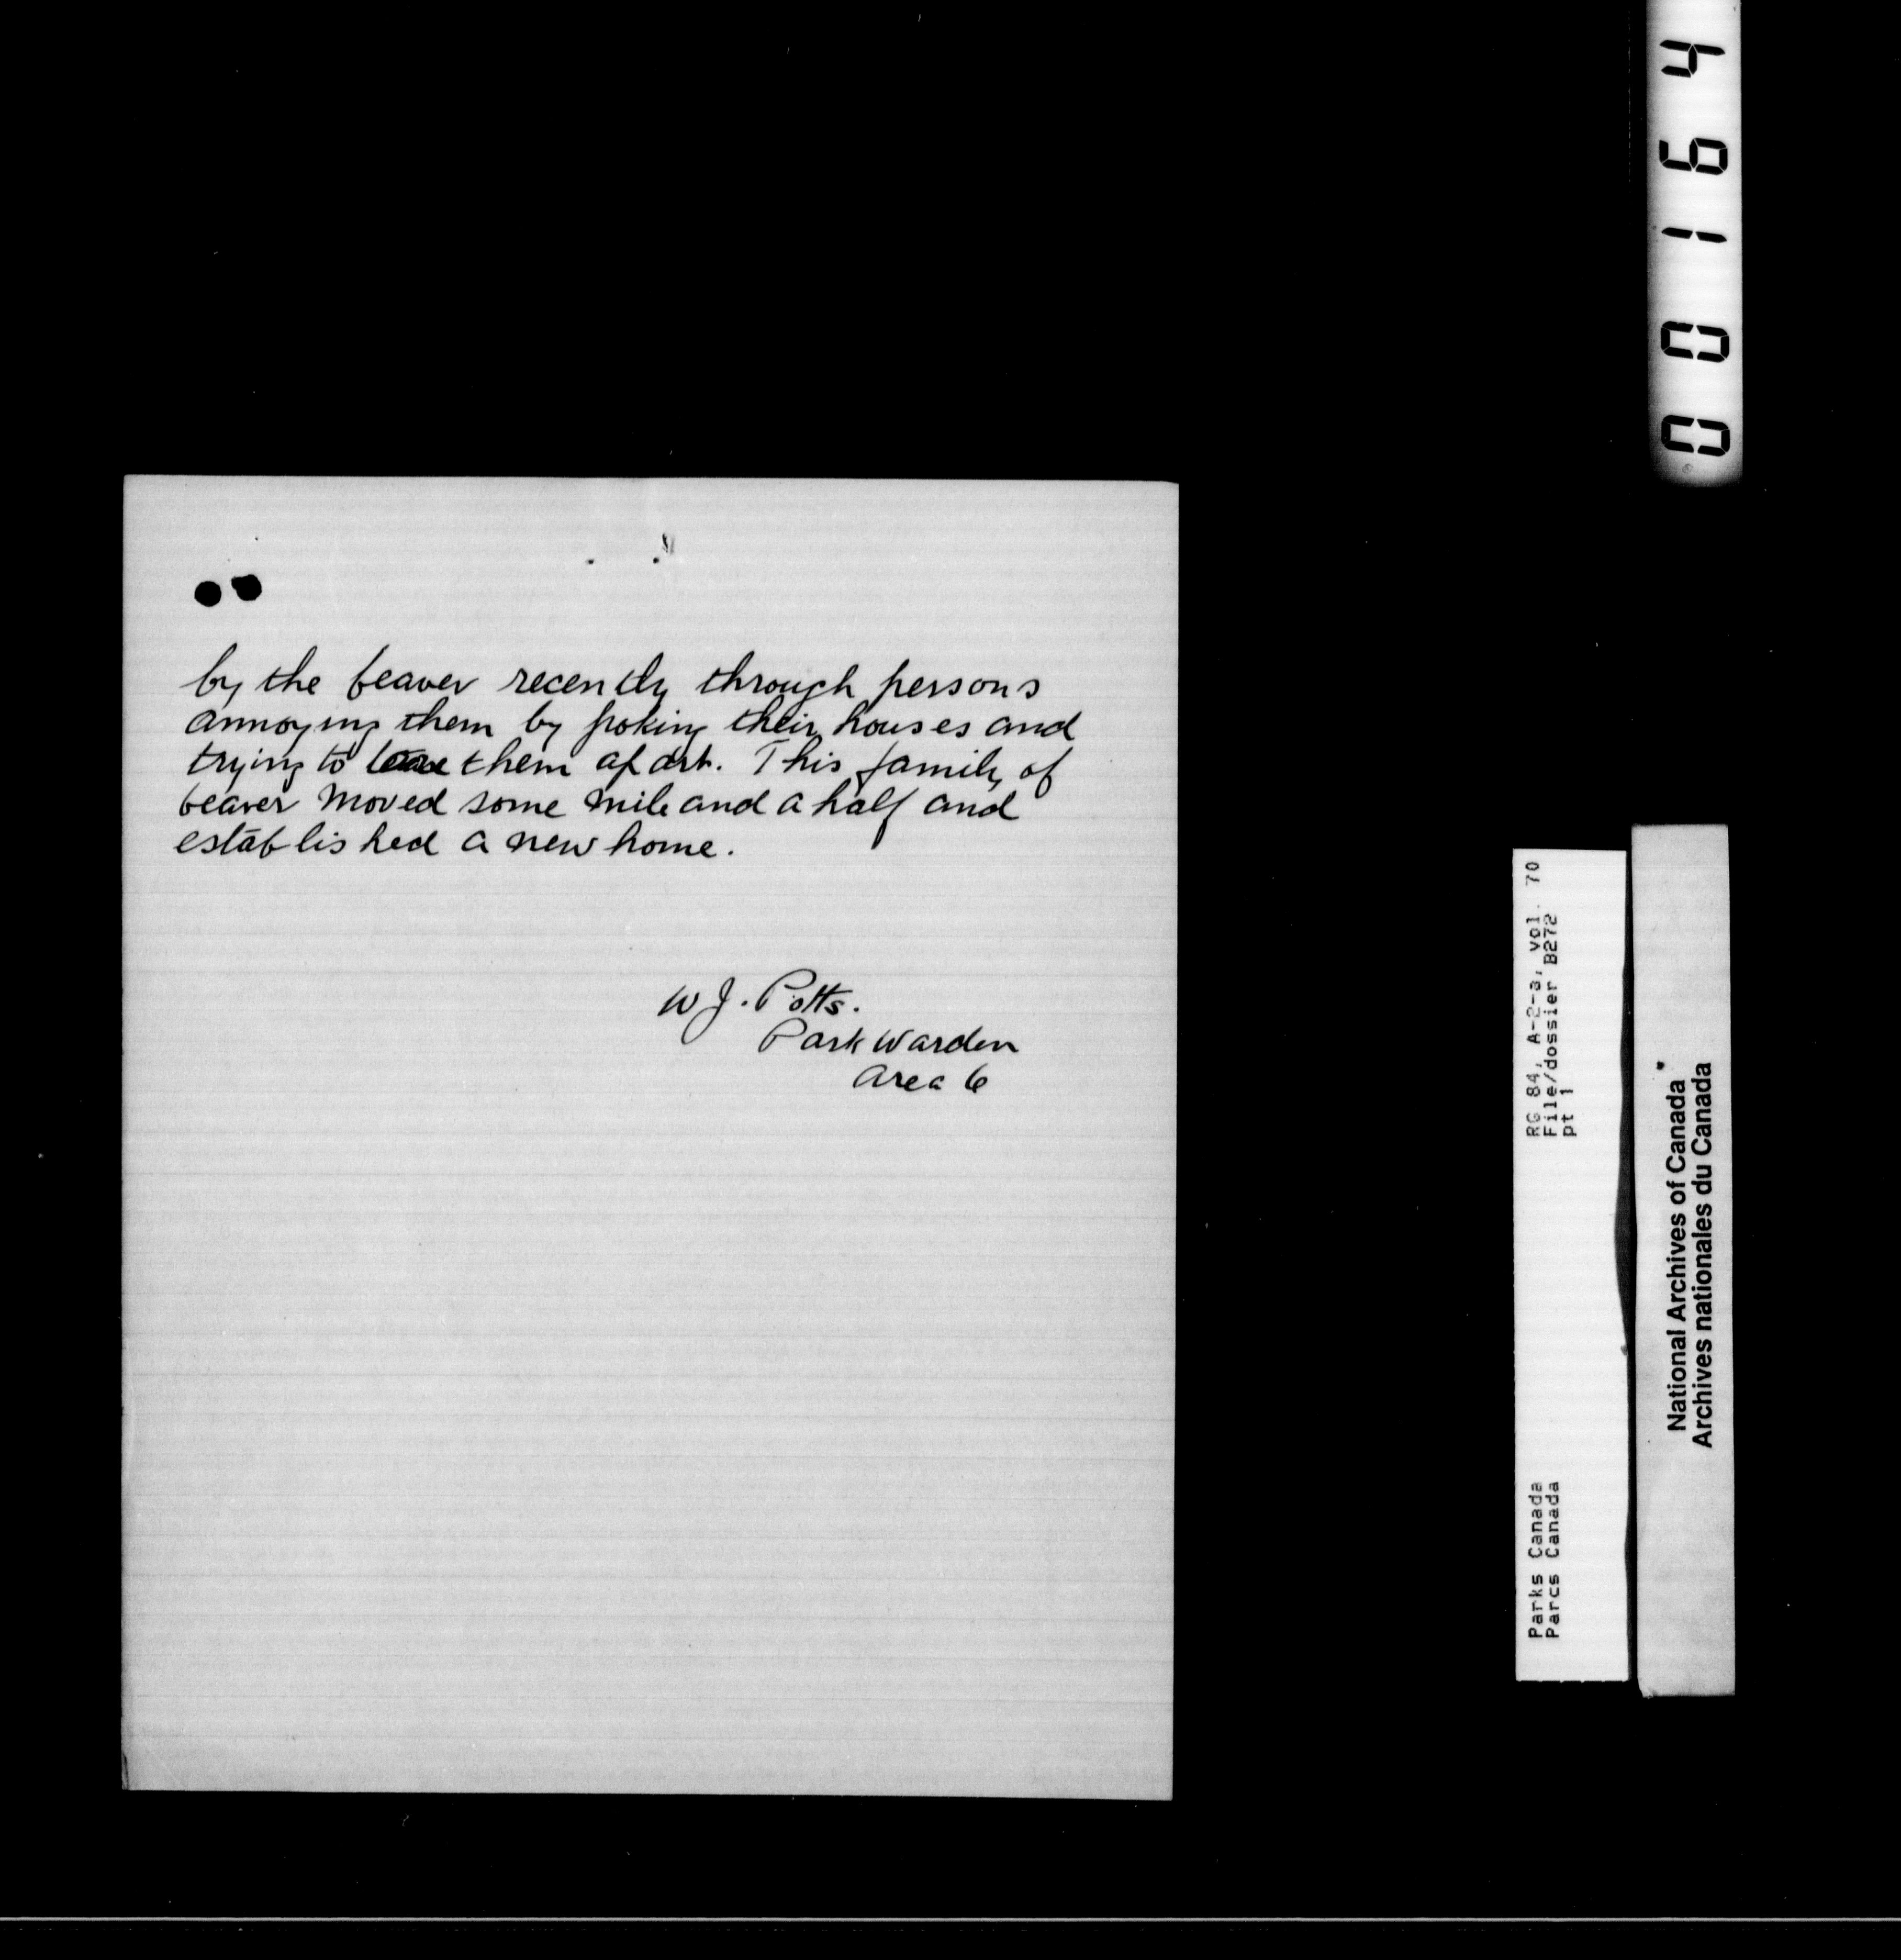 by the beaver recently through persons
annoying them by poking their houses and
trying to tear them apart. This family of
beaver moved some mile and a half and
established a new home.
W J. Potts.
Park Warden
Area 6
00164
RG 84, A-2-a, vol. 70
File/dossier B272
pt 1
Parks Canada
Parcs Canada
National Archives of Canada
Archives nationales du Canada